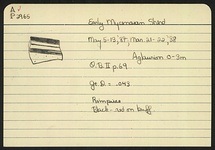 A
P 2965
Early Mycenaean Sherd
May 5-13, '37, Mar. 21-22, '38
Aglaurion 0-3m
O.B. II p. 69
Gr. D = .043
Rimpiece
Black-red on buff.